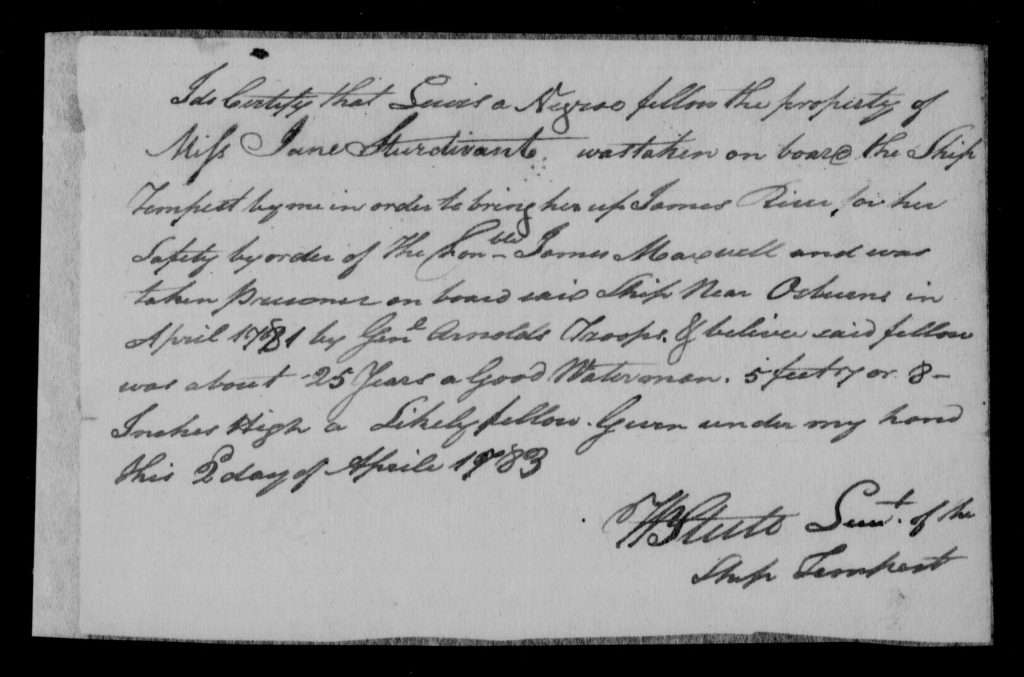 I do Certify that Lewis a Negroe fellow the property of
Miss Jane Sturdivant was taken on board the Ship
Tempest by me in order to bring her up James River for her
Safety by order of the Honble James Maxwell and was
taken Prisoner on board said Ship Near Osburns in
April 1781 by Genl Arnolds Troops. & belive said fellow
was about 25 Years a Good Waterman. 5 feet 7 or 8
Inches High a Likely fellow. Given under my hand
this 2 day of Aprile 1783
Wm Steele Lieut. of the
Ship Tempest